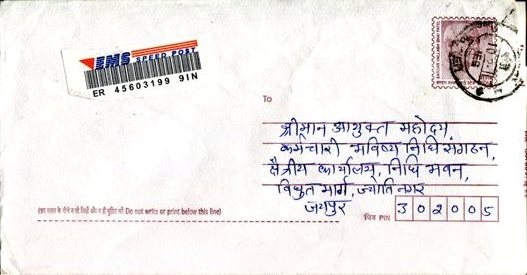 EMS SPEED POST
ER 45603199 9IN
To
श्रीमान आयुक्त महोदय,
कर्मचारी भविष्य निधि संगठन,
क्षैत्रीय कार्यालय, निधि भवन,
विधुत मार्ग, ज्योति नगर
जयपुर
पिन PIN 302005
Do not write or print below this line)